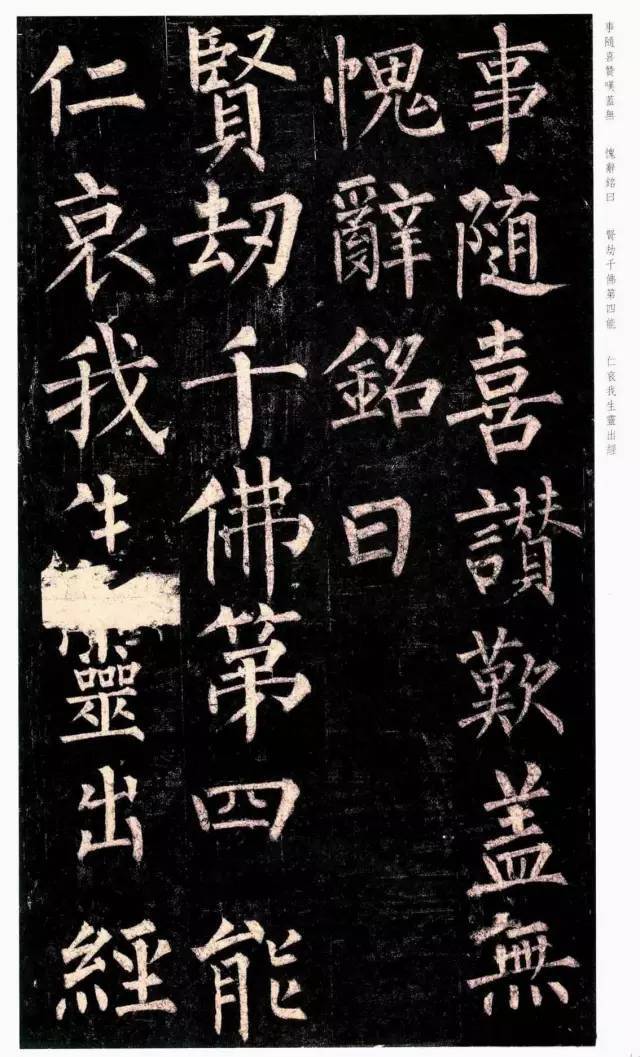 事隨喜贊嘆蓋無 愧辭銘曰 賢劫千佛第四能 仁哀我生靈出經
事隨喜讃歎盖無
愧辭銘曰
賢刧千佛第四能
仁哀我生靈出經